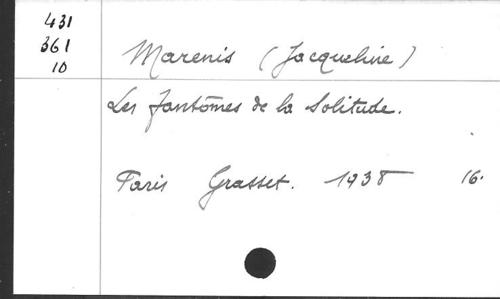 431
361
10
Marenis (Jacqueline)
Les fantômes de la Solitude.
Paris Grasset. 1938 16.